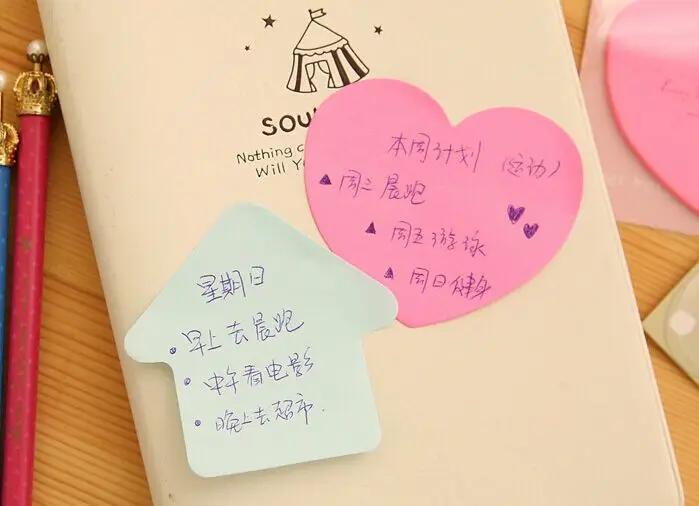 SOU
Nothing c
Will Y
本周计划 (运动)
▲ 周三 晨跑
▲ 周五 游泳
▲ 周日 健身
星期日
• 早上去晨跑
• 中午看电影
• 晚上去超市.